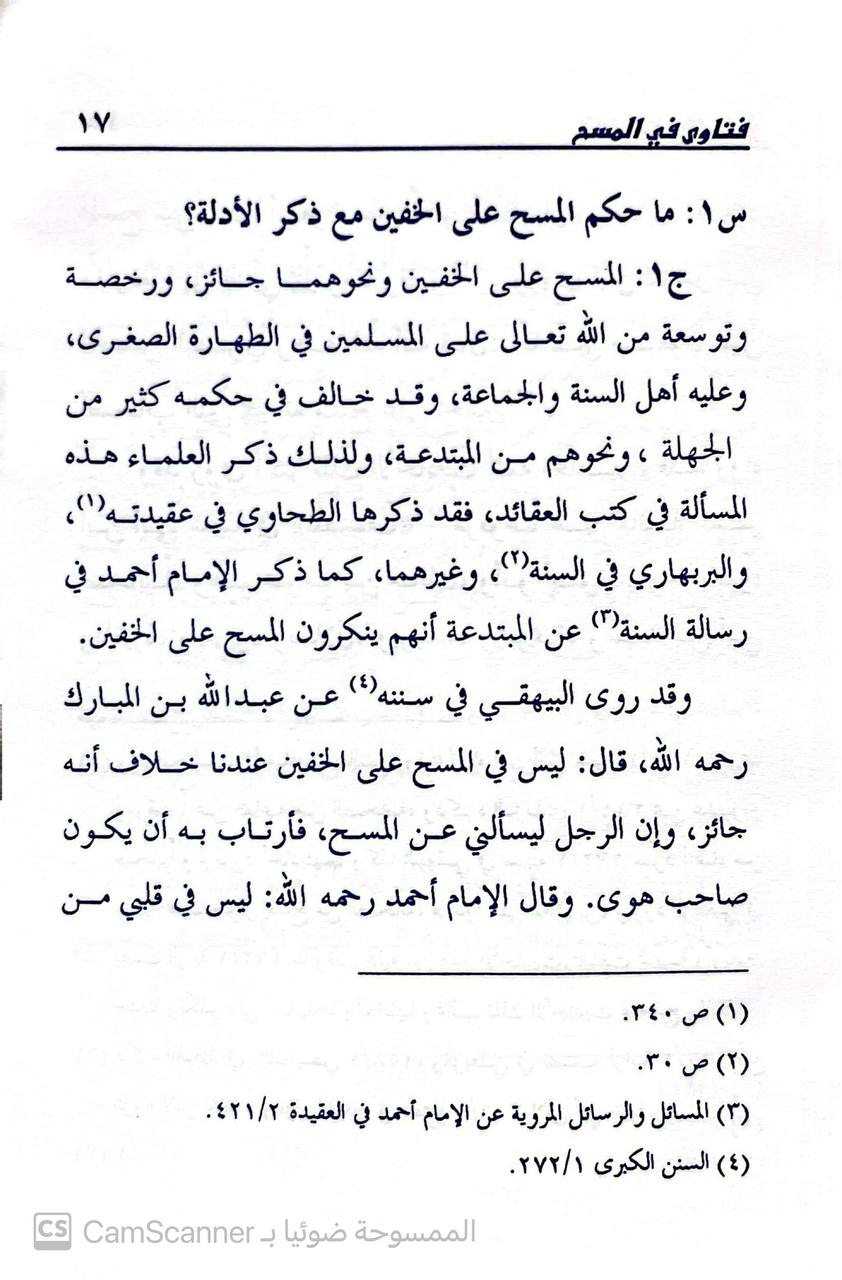 فتاوى في المسح ١٧
س١: ما حكم المسح على الخفين مع ذكر الأدلة؟
ج١: المسح على الخفين ونحوهما جائز، ورخصة
وتوسعة من الله تعالى على المسلمين في الطهارة الصغرى،
وعليه أهل السنة والجماعة، وقد خالف في حكمه كثير من
الجهلة ، ونحوهم من المبتدعة، ولذلك ذكر العلماء هذه
المسألة في كتب العقائد، فقد ذكرها الطحاوي في عقيدته(١)،
والبربهاري في السنة(٢)، وغيرهما، كما ذكر الإمام أحمد في
رسالة السنة(٣) عن المبتدعة أنهم ينكرون المسح على الخفين.
وقد روى البيهقي في سننه(٤) عن عبدالله بن المبارك
رحمه الله، قال: ليس في المسح على الخفين عندنا خلاف أنه
جائز، وإن الرجل ليسألني عن المسح، فأرتاب به أن يكون
صاحب هوى. وقال الإمام أحمد رحمه الله: ليس في قلبي من
(١) ص ٣٤٠.
(٢) ص ٣٠.
(٣) المسائل والرسائل المروية عن الإمام أحمد في العقيدة ٤٢١/٢.
(٤) السنن الكبرى ٢٧٢/١.
CS CamScanner الممسوحة ضوئيا بـ